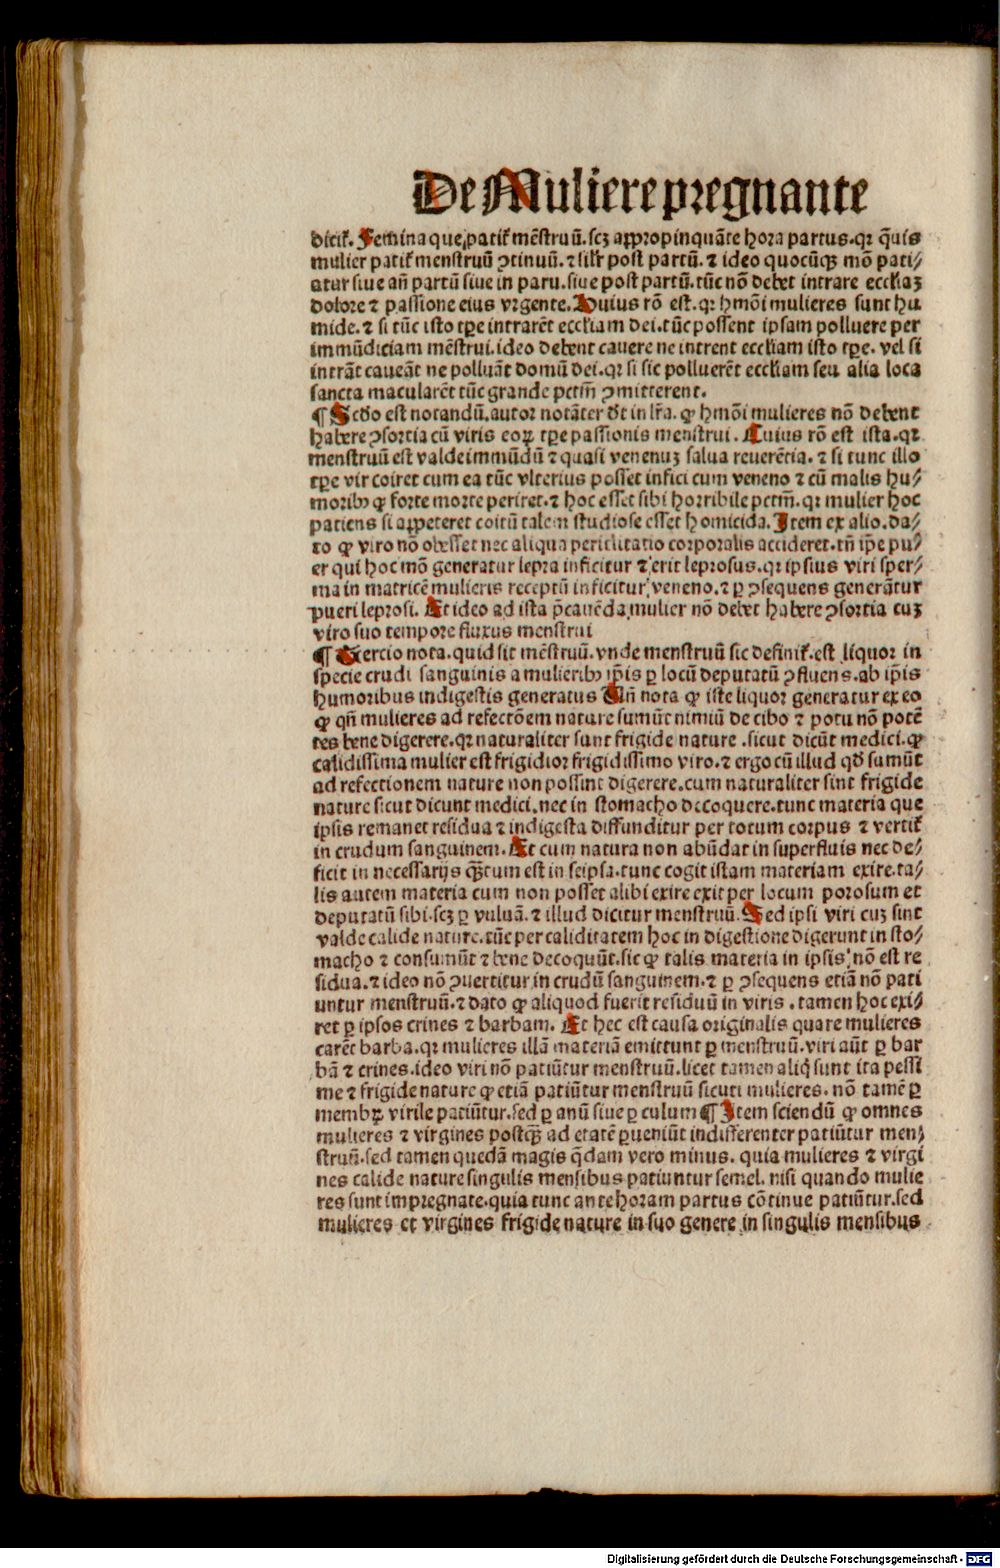 De Muliere pregnante
dicit᷑. Femina que patit᷑ mēstruū. scꝫ appropinquāte hora partus. qꝛ q̄uis
mulier patit᷑ menstruū ꝯtinuū. ⁊ silr̄ post partū. ⁊ ideo quocūqꝫ mō pati⸗
atur siue an̄ partū siue in paru. siue post partū. tūc nō debet intrare eccl̄iaꝫ
dolore ⁊ passione eius vrgente. Huius rō est. qꝛ hmōi mulieres sunt hu
mide. ⁊ si tūc isto tp̄e intrarēt eccl̄iam dei. tūc possent ipsam polluere per
immūdiciam mēstrui. ideo debent cauere ne intrent eccl̄iam isto tp̄e. vel si
intrāt caueāt ne polluāt domū dei. qꝛ si sic polluerēt eccl̄iam seu alia loca
sancta macularēt tūc grande pctm̄ ꝯmitterent.
¶ Scd̄o est notandū. autor notāter dt̄ in lr̄a. ꝙ hmōi mulieres nō debent
habere ꝯsortia cū viris eoꝝ tp̄e passionis menstrui. Cuius rō est ista. qꝛ
menstruū est valde immūdū ⁊ quasi venenuꝫ salua reuerētia. ⁊ si tunc illo
tp̄e vir coiret cum ea tūc vlterius posset infici cum veneno ⁊ cū malis hu⸗
moribꝰ ꝙ forte morte periret. ⁊ hoc esset sibi horribile pctm̄. qꝛ mulier hoc
patiens si appeteret coitū talem studiose esset homicida. Item ex alio. da⸗
to ꝙ viro nō obesset nec aliqua periclitatio corporalis accideret. tn̄ ip̄e pu⸗
er qui hoc mō generatur lepra inficitur ⁊ erit leprosus. qꝛ ipsius viri sper⸗
ma in matricē mulieris receptū inficitur veneno. ⁊ ꝑ ꝯsequens generātur
pueri leprosi. Et ideo ad ista p̄cauēda mulier nō debet habere ꝯsortia cuꝫ
viro suo tempore fluxus menstrui
¶ Tercio nota. quid sit mēstruū. vnde menstruū sic definit᷑. est liquor in
specie crudi sanguinis a mulieribꝰ ip̄is ꝑ locū deputatū ꝯfluens. ab ip̄is
humoribus indigestis generatus Vn̄ nota ꝙ iste liquor generatur ex eo
ꝙ qn̄ mulieres ad refectōem nature sumūt nimiū de cibo ⁊ potu nō potē
tes bene digerere. qꝛ naturaliter sunt frigide nature. sicut dicūt medici. ꝙ
calidissima mulier est frigidior frigidissimo viro. ⁊ ergo cū illud qd̄ sumūt
ad refectionem nature non possint digerere. cum naturaliter sint frigide
nature sicut dicunt medici. nec in stomacho decoquere. tunc materia que
ipsis remanet residua ⁊ indigesta diffunditur per totum corpus ⁊ vertit᷑
in crudum sanguinem. Et cum natura non abūdat in superfluis nec de⸗
ficit in necessarijs qꝫ̄tum est in seipsa. tunc cogit istam materiam exire. ta⸗
lis autem materia cum non posset alibi exire exit per locum porosum et
deputatū sibi. scꝫ ꝑ vuluā. ⁊ illud dicitur menstruū. Sed ipsi viri cuꝫ sint
valde calide nature. tūc per caliditatem hoc in digestione digerunt in sto⸗
macho ⁊ consumūt ⁊ bene decoquūt. sic ꝙ talis materia in ipsis nō est re
sidua. ⁊ ideo nō ꝯuertitur in crudū sanguinem. ⁊ ꝑ ꝯsequens etiā nō pati
untur menstruū. ⁊ dato ꝙ aliquod fuerit residuū in viris. tamen hoc exi⸗
ret ꝑ ipsos crines ⁊ barbam. Et hec est causa originalis quare mulieres
carēt barba. qꝛ mulieres illā materiā emittunt ꝑ menstruū. viri aūt ꝑ bar
bā ⁊ crines. ideo viri nō patiūtur menstruū. licet tamen aliqͥ sunt ita pessi
me ⁊ frigide nature ꝙ etiā patiūtur menstruū sicuti mulieres. nō tamē ꝑ
membꝝ virile patiūtur. sed ꝑ anū siue ꝑ culum ¶ Item sciendū ꝙ omnes
mulieres ⁊ virgines postqꝫ̄ ad etatē ꝑueniūt indifferenter patiūtur men⸗
struū. sed tamen quedā magis q̄dam vero minus. quia mulieres ⁊ virgi
nes calide nature singulis mensibus patiuntur semel. nisi quando mulie
res sunt impregnate. quia tunc ante horam partus cōtinue patiūtur. sed
mulieres et virgines frigide nature in suo genere in singulis mensibus
Digitalisierung gefördert durch die Deutsche Forschungsgemeinschaft - DFG